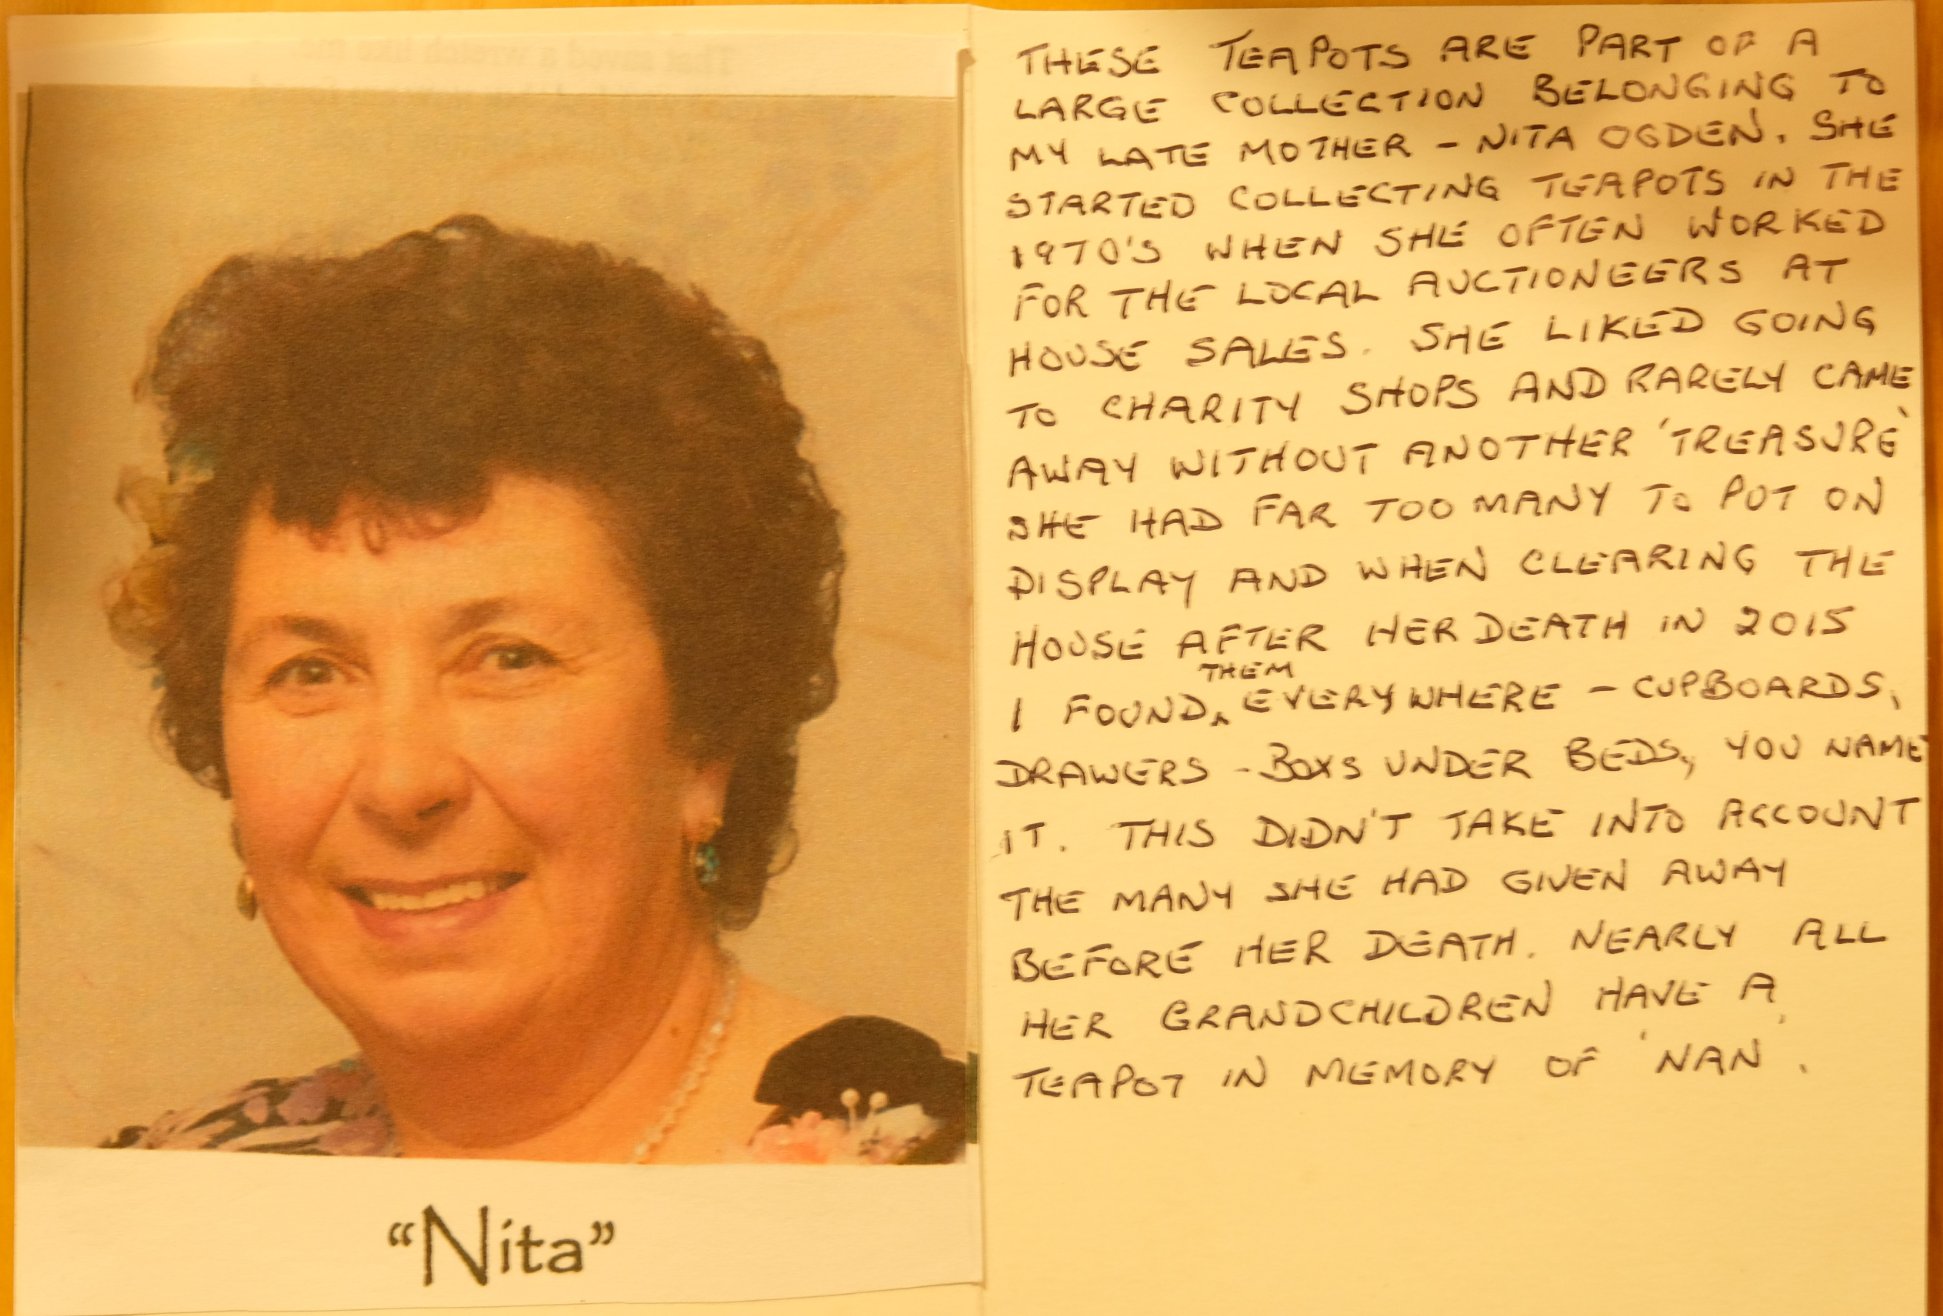 That saved a wretch like me.
"Nita"
THESE TEAPOTS ARE PART OF A
LARGE COLLECTION BELONGING TO
MY LATE MOTHER - NITA OGDEN. SHE
STARTED COLLECTING TEAPOTS IN THE
1970'S WHEN SHE OFTEN WORKED
FOR THE LOCAL AUCTIONEERS AT
HOUSE SALES. SHE LIKED GOING
TO CHARITY SHOPS AND RARELY CAME
AWAY WITHOUT ANOTHER 'TREASURE'
SHE HAD FAR TOO MANY TO PUT ON
DISPLAY AND WHEN CLEARING THE
HOUSE AFTER HER DEATH IN 2015
I FOUND THEM EVERYWHERE - CUPBOARDS,
DRAWERS - BOXS UNDER BEDS, YOU NAME
IT. THIS DIDN'T TAKE INTO ACCOUNT
THE MANY SHE HAD GIVEN AWAY
BEFORE HER DEATH. NEARLY ALL
HER GRANDCHILDREN HAVE A
TEAPOT IN MEMORY OF 'NAN'.